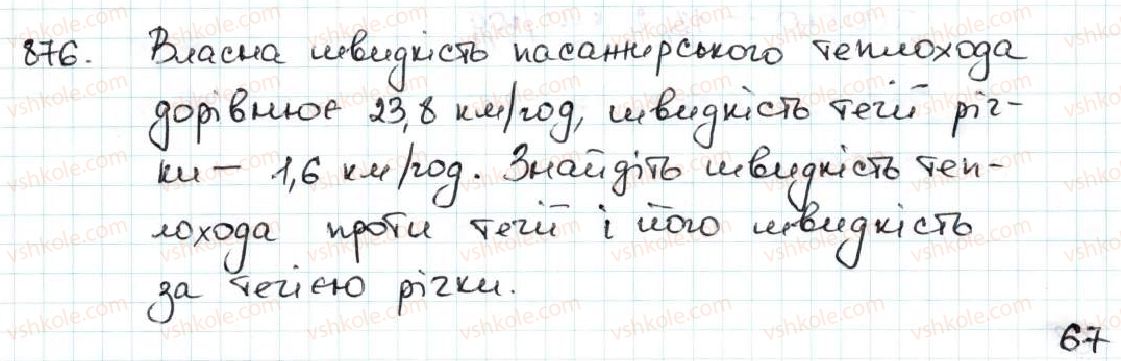 876. Власна швидкість пасажирського теплохода
дорівнює 23,8 км/год, швидкість течії річ-
ки — 1,6 км/год. Знайдіть швидкість теп-
лохода проти течії і його швидкість
за течією річки.
67